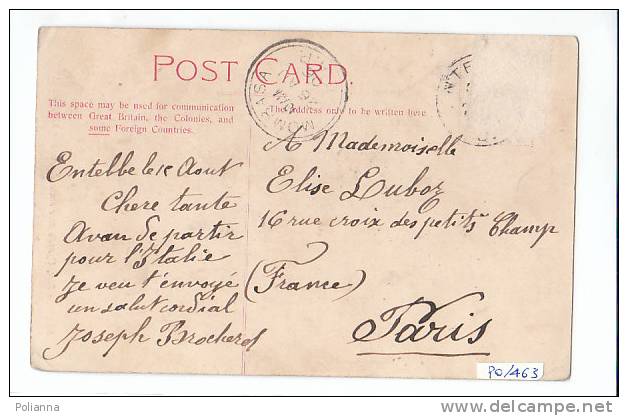 POST CARD.
This space may be used for communication
between Great Britain, the Colonies, and
some Foreign Countries.
The address only to be written here
MOMBASA
Entebbe le 1e Aout
Chere tante
Avan de partir
pour l'Italie
Je veu t'envoyé
un salut cordial
Joseph Brocherel
A Mademoiselle
Elise Luboz
16 rue croix des petits Champ
(France)
Paris
PO/463
Polianna
delcampe.net